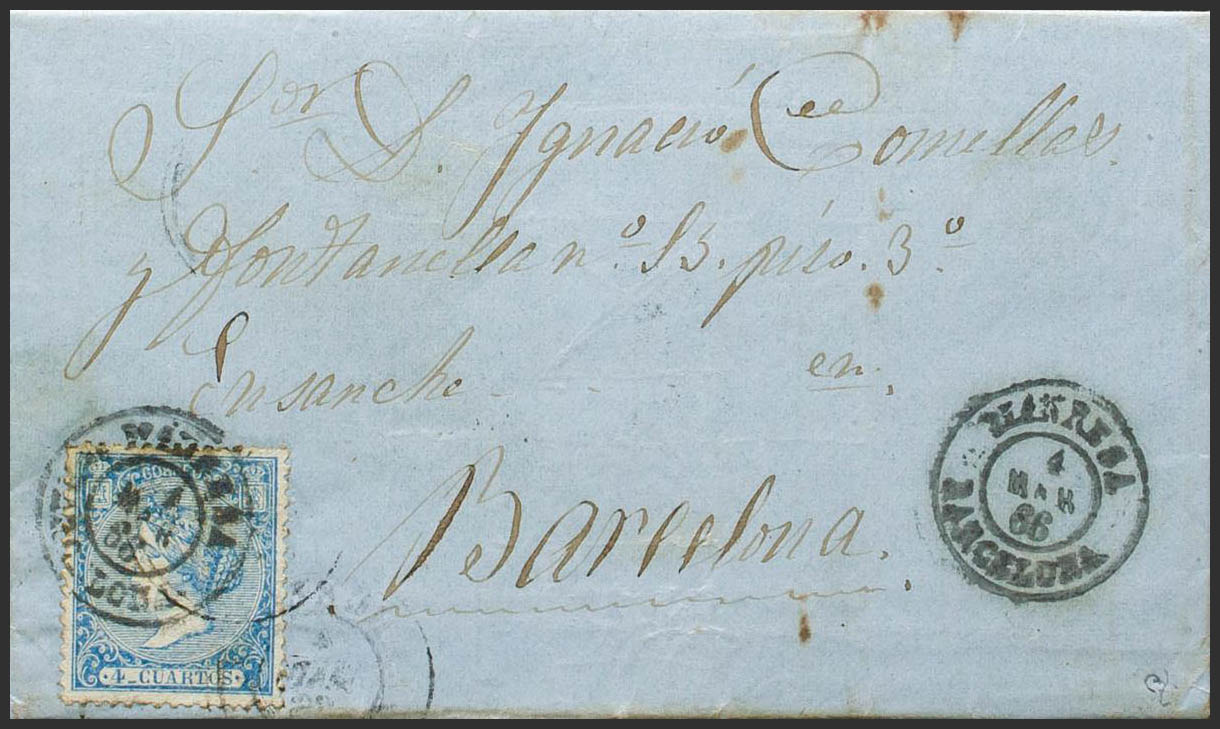 Sor D. Ygnacio Comellas
y Fontanella nº. 13. piso. 3º.
Ensanche - - en,
Barcelona.
MANRESA
4
MAR
66
BARCELONA
CORREOS
4 CUARTOS